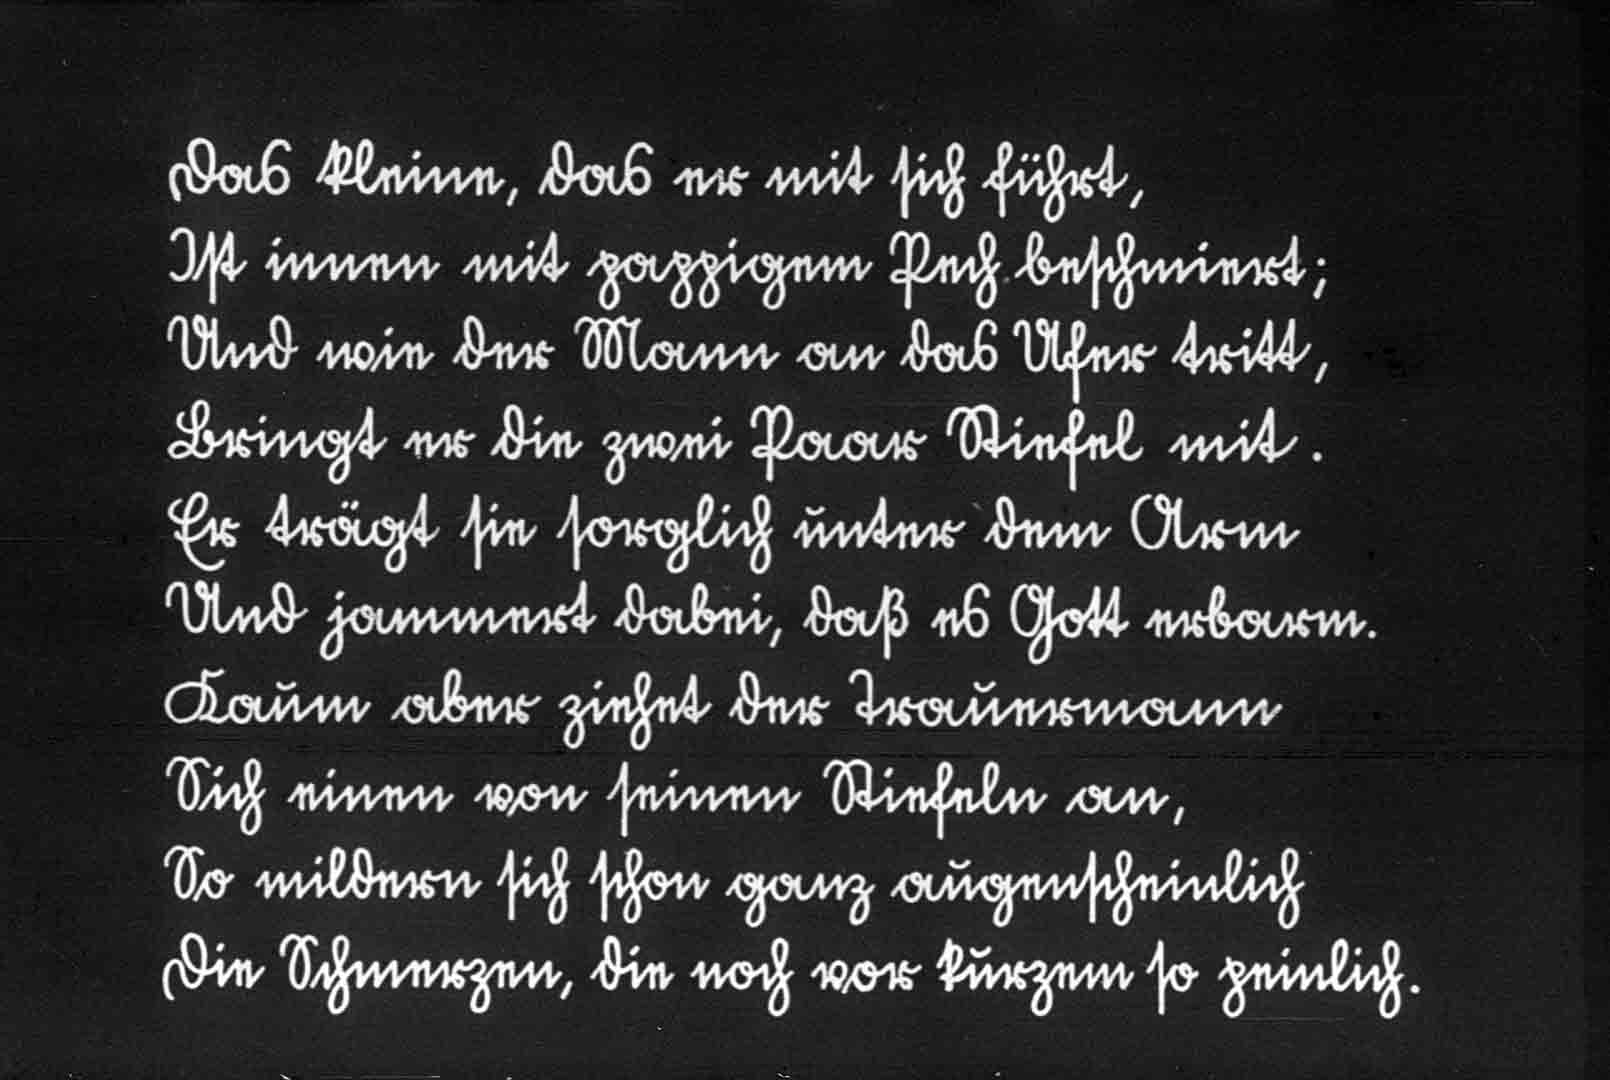 Das kleine, das er mit sich führt,
Ist innen mit pappigem Pech beschmiert;
Und wie der Mann an das Ufer tritt,
Bringt er die zwei Paar Stiefel mit.
Er trägt sie sorglich unter dem Arm
Und jammert dabei, daß es Gott erbarm.
Kaum aber ziehet der Trauermann
Sich einen von seinen Stiefeln an,
So mildern sich schon ganz augenscheinlich
Die Schmerzen, die noch vor kurzem so peinlich.